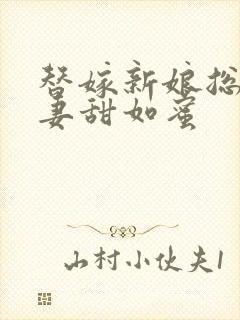 替嫁新娘总
妻甜如蜜
山村小伙夫1